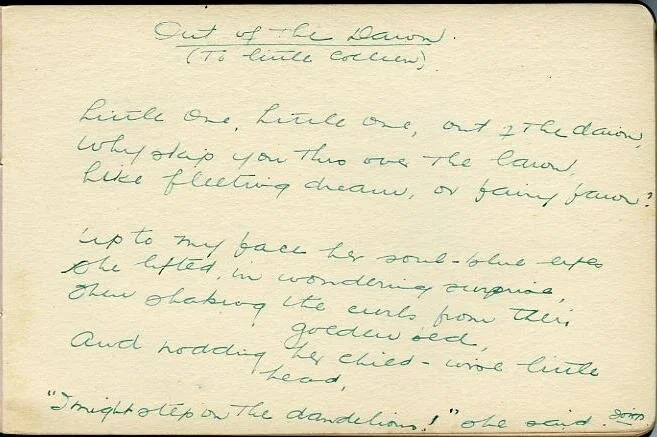 Out of the Dawn.
(To little Colleen).
Little One, Little One, out of the dawn,
Why skip you thus over the lawn,
Like fleeting dream, or fairy fawn?
Up to my face her soul-blue eyes
She lifted, in wondering surprise,
Then shaking the curls from their
golden bed,
And nodding her child-wise little
head,
"I might step on the dandelions!" she said.